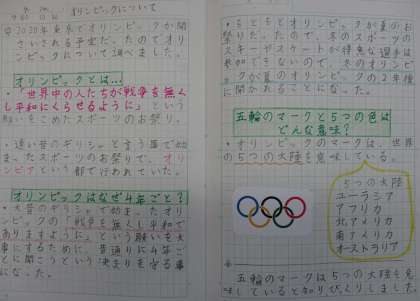 オリンピックについて
2020年東京でオリンピックが開
さいされる予定だ。たのでオリ
ンピックについて調べました。
オリンピックとは…
・「世界中の人たちが戦争を無く
し平和にくらせるように」という
願いをこめたスポーツのお祭り。
・遠い昔のギリシャと言う国で始
まったスポーツのお祭りで、オリ
ンピアという都で行われていた。
オリンピックはなぜ4年ごと?
・大昔のギリシャで始まったオリ
ンピックの「戦争を無くし平和で
ありますように」という願いを大
事にするために、昔通りに4年ご
とに開こうという決まりを守る事
になった。
・もともとオリンピックが夏のお
祭りだったので、冬のスポーツの
スキーやスケートが得意な選手は
参加できないので、冬のオリンピ
ックが夏のオリンピックの2年後
に開かれることになった。
五輪のマークと5つの色は
どんな意味?
・オリンピックのマークは、世界
の5つの大陸を意味している。
5つの大陸
ユーラシア
アフリカ
北アメリカ
南アメリカ
オーストラリア
五輪のマークは5つの大陸を意
味していると知りびっくりしました